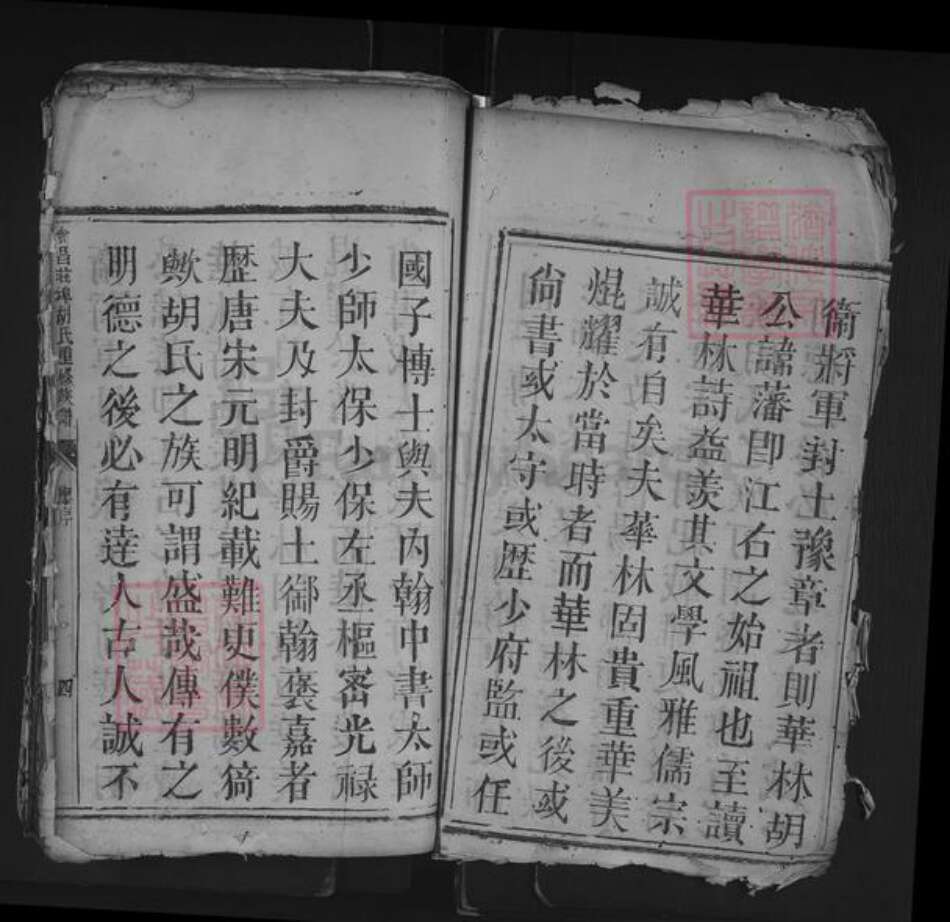 衞將軍封土豫章者則華林胡
公諱藩卽江右之始祖也至讀
華林詩益羡其文學風雅儒宗
誠有自矣夫華林固貴重華美
焜耀於當時者而華林之後或
尙書或太守或歷少府監或任
國子博士與夫内翰中書太師
少師太保少保左丞樞密光祿
大夫及封爵賜土御翰褒嘉者
歷唐宋元明紀載難更僕數猗
歟胡氏之族可謂盛哉傳有之
明德之後必有達人古人誠不
會昌莊埠胡氏重修族譜
舊序
四